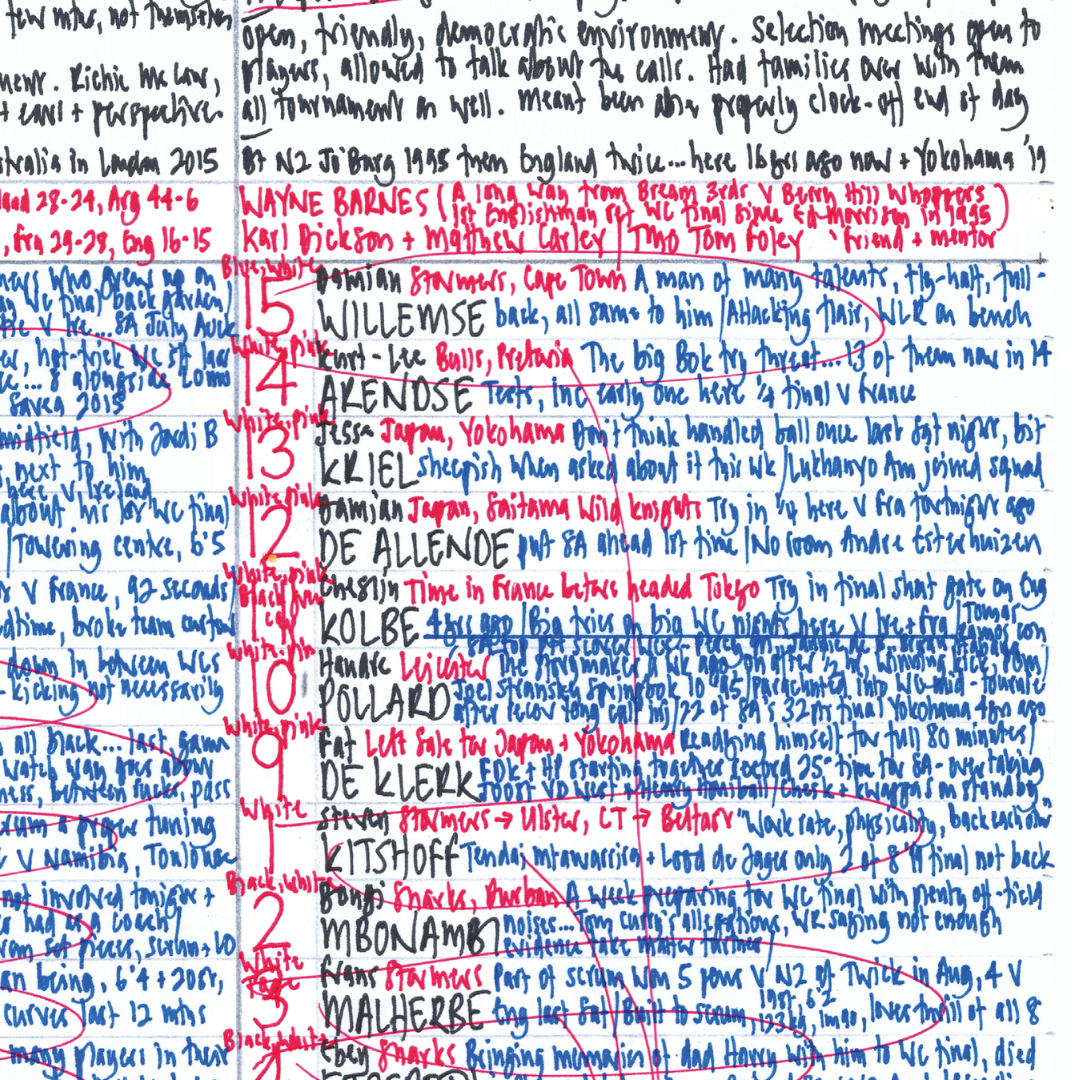 few mths, not themselves
open, friendly, democratic environment. Selection meetings open to
ment. Richie McCaw,
players, allowed to talk about the calls. Had families over with them
+ perspective.
all tournament as well. Meant been able properly clock-off end of day
stralia in London 2015
Bt NZ Jo'Burg 1995 then England twice... here 16yrs ago now + Yokohama '19
28-24, Arg 44-6
WAYNE BARNES (A long way from Bream 3rds V Berry Hill Whoppers
1st Englishman ref WC final since Ed Morrison in 1995)
, Fra 29-28, Eng 16-15
Karl Dickson + Matthew Carley | TMO Tom Foley 'friend + mentor
who grew up on
WC final back garden
Blue, White
15
Damian Stormers, Cape Town A man of many talents, fly-half, full-
WILLEMSE back, all same to him / Attacking flair, WLR on bench
SA July Auck
White, pink
14
Kurt-Lee Bulls, Pretoria The big Bok try threat... 13 of them now in 14
ARENDSE Tests, inc early one here ¼ final V France
hat-trick
8 alongside Lomu
Savea 2015
White, pink
13
Jesse Japan, Yokohama Don't think handled ball once last Sat night, bit
KRIEL sheepish when asked about it this wk / Lukhanyo Am joined squad
midfield, with Jordi B
next to him
here V Ireland
White, pink
12
Damian Japan, Saitama Wild Knights Try in ¼ here V Fra fortnight ago
DE ALLENDE put SA ahead 1st time / No room Andre Esterhuizen
about his 1st WC final
/ Towering centre, 6'5
White, pink
11
Cheslin Time in France before headed Tokyo Try in final shut gate on Eng
KOLBE 4yrs ago / Big tries on big WC nights here V Ire + Fra /
V France, 92 seconds
broke team
White, pink
10
Handre Leicester The a wk ago, on after ½ hr, winning kick, 
POLLARD Joel Stransky Springbok 10 '95 / Parachuted into WC mid-
after recov long calf inj / 22 of SA's 32pts final Yokohama 4yrs ago
down in between WCs
- kicking not necessarily
White, pink
9
Faf Left Sale for Japan + Yokohama Readying himself for full 80 minutes /
DE KLERK FDK + HP starting together record 25th time for SA - overtaking
Joost VD West + Henry Honiball / Cheslk + Kwagga's on standby
all black... last game
watch way goes about
between rucks, pass
White
1
Steven Stormers → Ulster, CT → Belfast "Work rate, physicality, back each other"
KITSHOFF Tendai Mtawarira + Lood de Jager only 2 of 8 '19 final not back
scrum a proper tuning
V Namibia, Toulouse
Black, White
2
Bongi Sharks, Durban A week preparing for WC final with plenty off-field
MBONAMBI noises... Tom Curry's allegations, WR saying not enough
evidence take matter further /
not involved tonight +
had as a coach /
set pieces, scrum + LO
White
3
Frans Stormers Part of scrum won 5 pens V NZ at Twick in Aug, 4 V
MALHERBE Eng last Sat / Built to scrum, 19st, 6'2, 123kg, 1m90, loves thrill of all 8
being, 6'4 + 20st,
curves last 12 mths
Black, White
4
Eben Sharks Bringing memories of dad Harry with him to WC final, died
many players in their